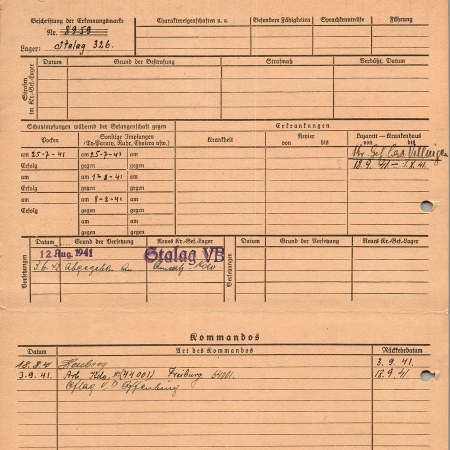 Beschriftung der Erkennungsmarke
Nr. 8959
Lager: Stalag 326.
Charaktereigenschaften u. a.
Besondere Fähigkeiten
Sprachkenntnisse
Führung
Strafen im Kr.-Gef.-Lager
Datum
Grund der Bestrafung
Strafmaß
Verbüßt, Datum
Schutzimpfungen während der Gefangenschaft gegen
Erkrankungen
Pocken
Sonstige Impfungen
(Ty-Paraty, Ruhr, Cholera usw.)
Krankheit
Revier
von bis
Lazarett – Krankenhaus
von bis
am 25-7-41 am 25-7-41
Erfolg gegen
am am 12-8-41
Erfolg gegen
am am 8-2-41
Erfolg gegen
am am
gegen gegen
am am
gegen gegen
Kr. Gef. Laz. Villingen
18.9.41
Versetzungen
Datum
Grund der Versetzung
Neues Kr.-Gef.-Lager
12 Aug. 1941
Stalag VB
Abgegeben an
Versetzungen
Datum
Grund der Versetzung
Neues Kr.-Gef.-Lager
Kommandos
Datum
Art des Kommandos
Rückkehrdatum
18.8.41 Heuberg 3.9.41.
3.9.41. Arb. Kdo. (44001) Freiburg 18.9.41
Offenburg